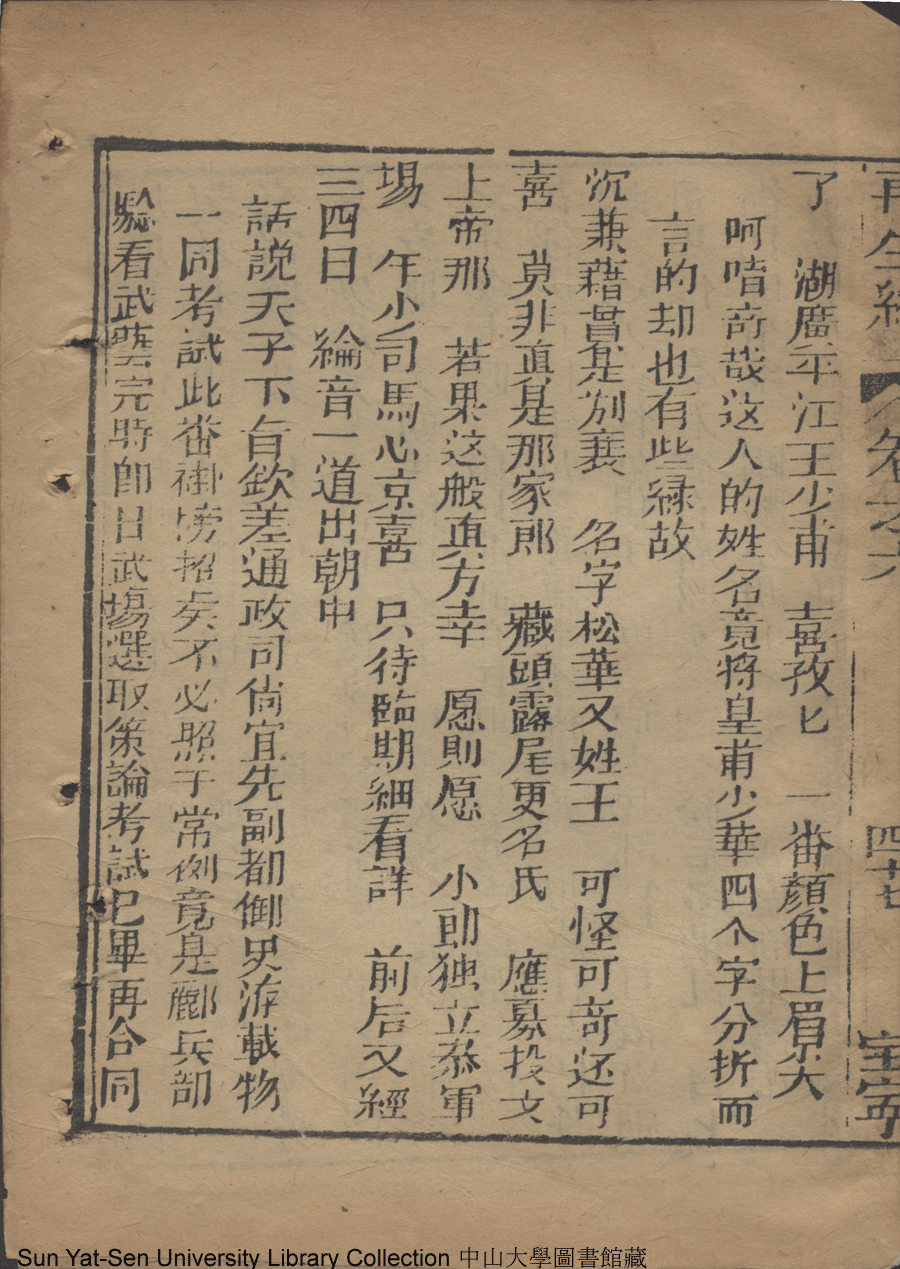 再生緣 卷之六 四十七 寧
了 湖廣平江王少甫 喜孜匕 一番顔色上眉尖
呵唶竒哉这人的姓名竟將皇甫少華四个字分折而
言的却也有些緑故
沉兼藉貫是别襄 名字松華又姓王 可怪可竒还可
喜 莫非直是那家郎 藏頭露尾更名氏 應募投文
上帝那 若果这般真万幸 愿則愿 小郎独立恭軍
場 年少司馬心京喜 只待臨期細看詳 前后又經
三四日 綸音一道出朝中
話説天子下旨欽差通政司尚宜先副都御史游載物
一同考試此番掛榜招矣不必照于常例竟是酈兵部
驗看武藝完時即日武塲選取策論考試已畢再合同
Sun Yat-Sen University Library Collection 中山大學圖書館藏